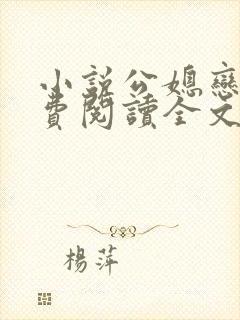 小說公媳戀
費閱讀全文
楊萍